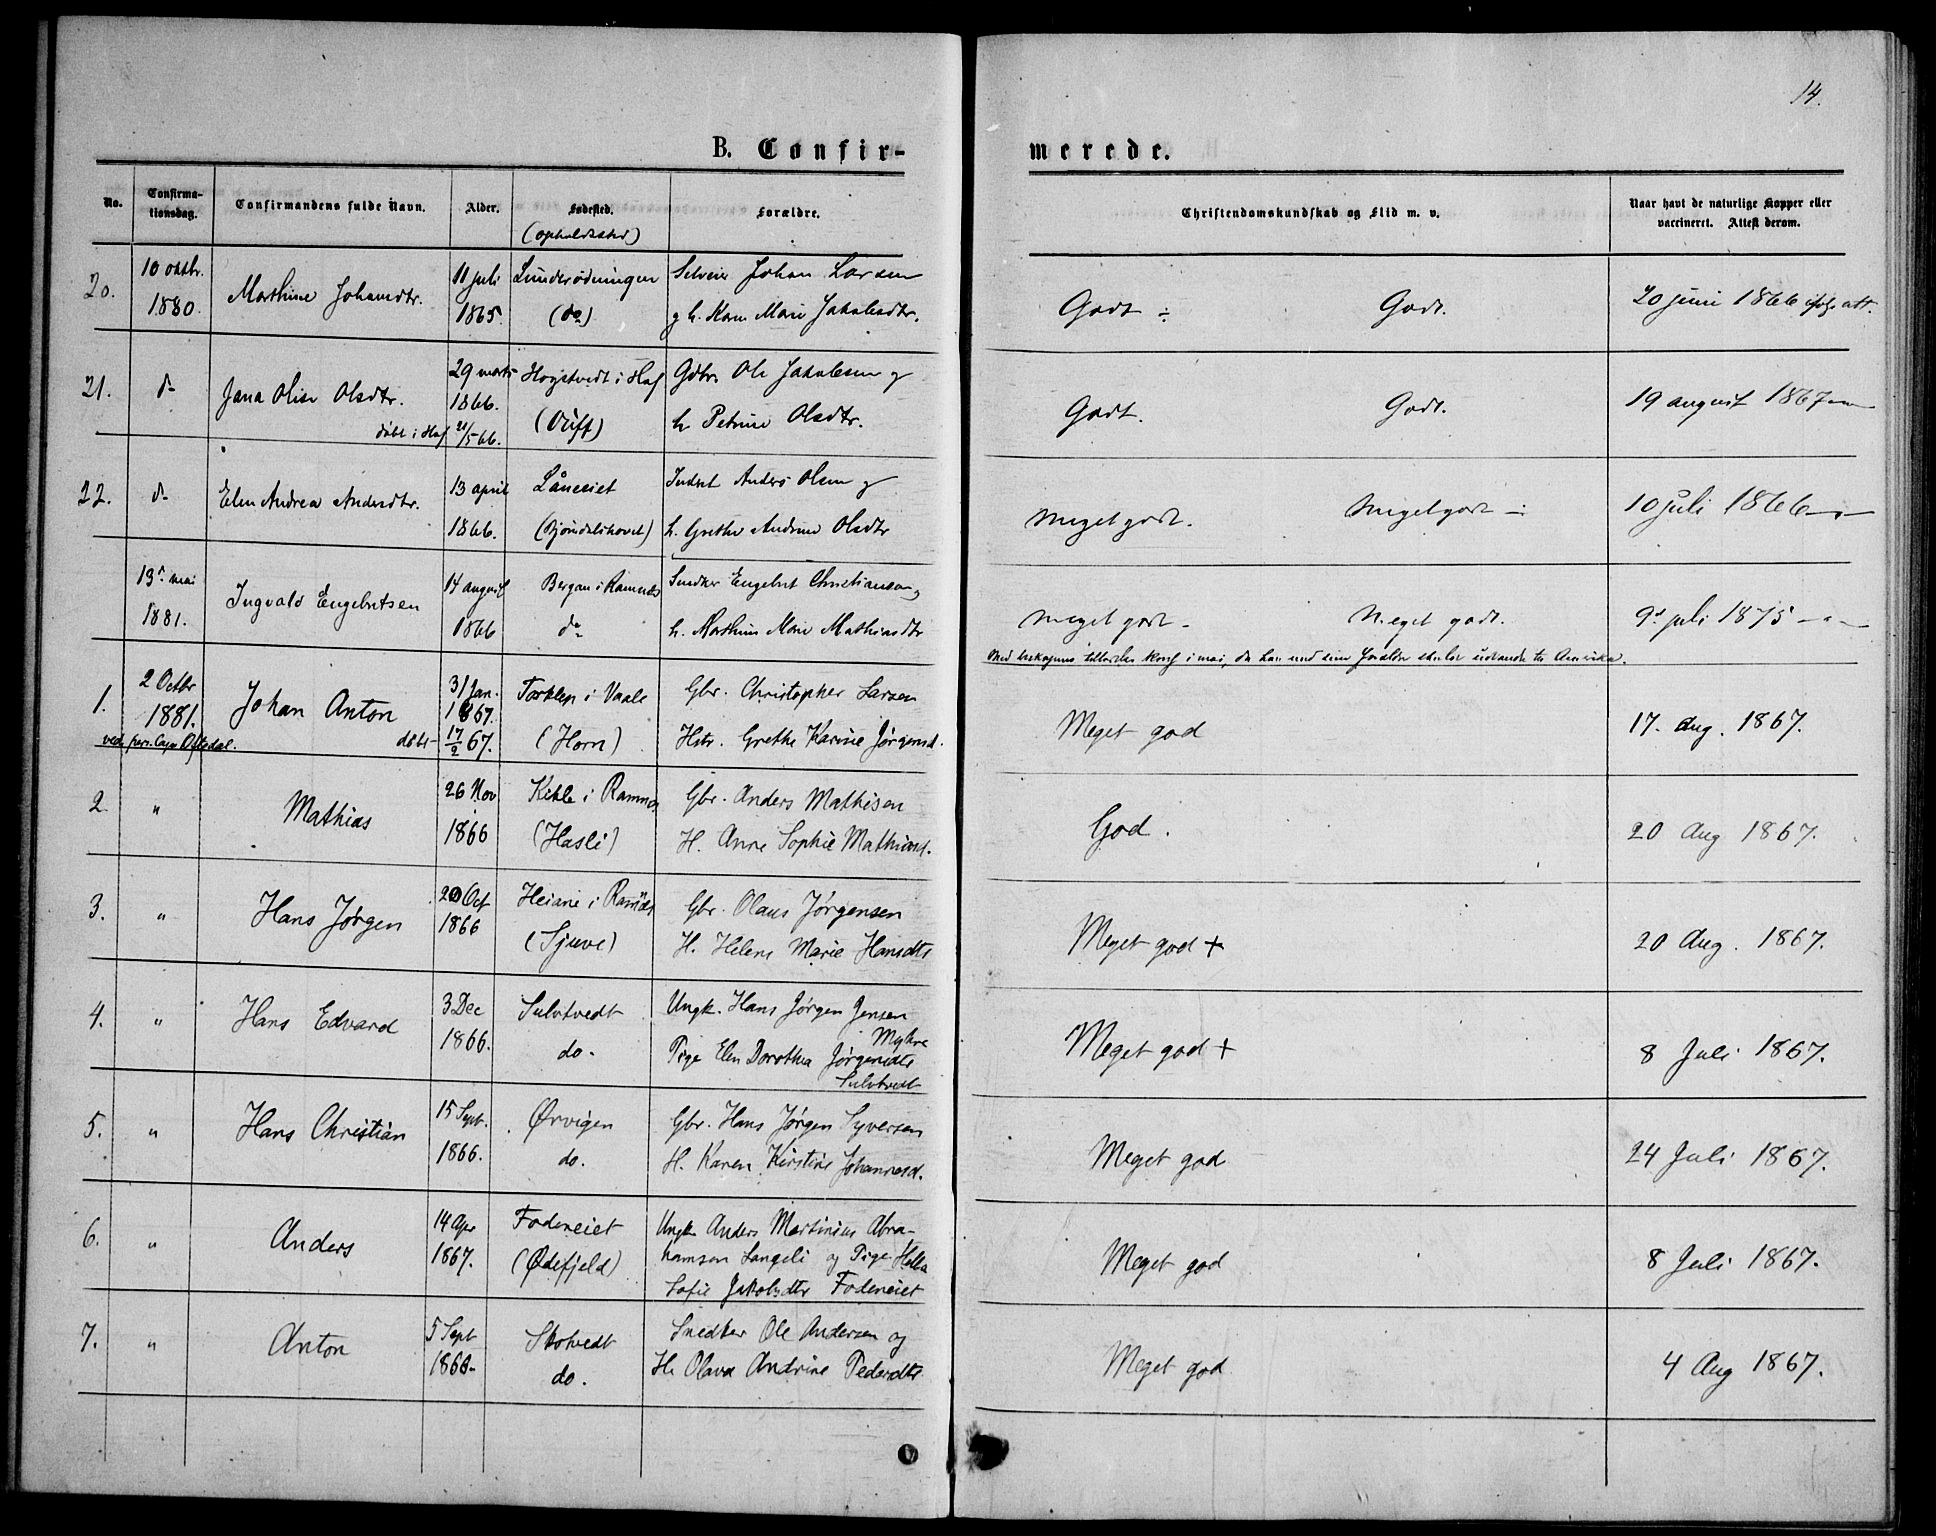 14.
B. Confir-
merede.
No.
Confirma-
tionsdag.
Confirmandens fulde Navn.
Alder.
Fødested.
(opholdssted)
Forældre.
Christendomskundskab og Flid m. v.
Naar havt de naturlige Kopper eller
vaccineret. Attest derom.
20.
10 oktbr.
1880.
Marthine Johansdtr.
11 juli
1865.
Sunderødningen
(do)
Selveier Johan Larsen
og h. Karen Marie Jakobsdtr.
Godt ÷
Godt.
20 juni 1866 ifølge att.
21.
do
Jana Olise Olsdtr.
døbt i Hof
29 marts
1866.
21/5 66.
Hogstvedt i Hof
(Tuft)
Gdbr. Ole Jakobsen og
h. Petrine Olsdtr.
Godt.
Godt.
19 august 1867 — " —
22.
do
Elen Andrea Andersdtr.
13 april
1866.
Låneeiet
Inderst Anders Olsen og
h. Grethe Andrine Olsdtr
meget godt.
meget godt ÷
10 juli 1866 — " —
13de mai
1881.
Ingvald Engebretsen
14 august
1866
Bergan i Ramnæs
do
Snedker Engebret Christiansen og
h. Marthine Marie Mathiasdtr
meget godt -
Meget godt.
9de juli 1875 — " —
Med biskopens tilladelse konf i mai, da han med sine Forældre skulde udvandre til Amerika.
1.
2 Octbr
1881.
ved pers. Cap. Oftedal.
Johan Anton
døbt -
31 Jan.
1867.
17/2 67.
Torklep i Vaale
(Horn)
Gbr. Christopher Larsen
Hstr. Grethe Karine Jørgensd.
Meget god
17. Aug. 1867.
2
"
Mathias
26 Nov
1866
Kikle i Ramnæs
(Hasli)
Gbr. Anders Mathisen
H. Anne Sophie Mathiasd.
God.
20 Aug 1867.
3.
"
Hans Jørgen
20 Oct
1866
Heiane i Ramnæs
(Sjuve)
Gbr. Olaus Jørgensen
H. Helene Marie Hansdtr
Meget god +
20 Aug. 1867.
4.
"
Hans Edvard
3 Dec
1866.
Sulutvedt
do.
Ungk. Hans Jørgen Jensen
Myhre
Pige Elen Dorothea Jørgensdtr
Sulutvedt
Meget god +
8 Juli 1867.
5.
"
Hans Christian
15 Sept.
1866.
Ørvigen
do.
Gbr. Hans Jørgen Syversen
H. Karen Kirstine Johannesd.
Meget god
24 Juli 1867.
6.
"
Anders
14 Apr
1867.
Fodeneiet
(Ødefjeld)
Ungk. Anders Martinius Abra-
hamsen Langeli og Pige Helle
Sofie Jakobsdtr Fodeneiet
Meget god
8 Juli 1867.
7.
"
Anton
5 Sept
1866.
Skotvedt
do.
Snedker Ole Andersen og
H. Olava Andrine Pedersdtr
Meget god
4 Aug 1867.